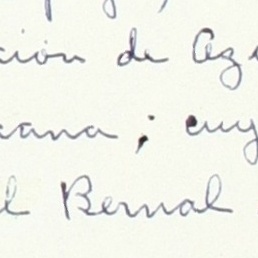 ción de Az
cana; cuy
el Bernal